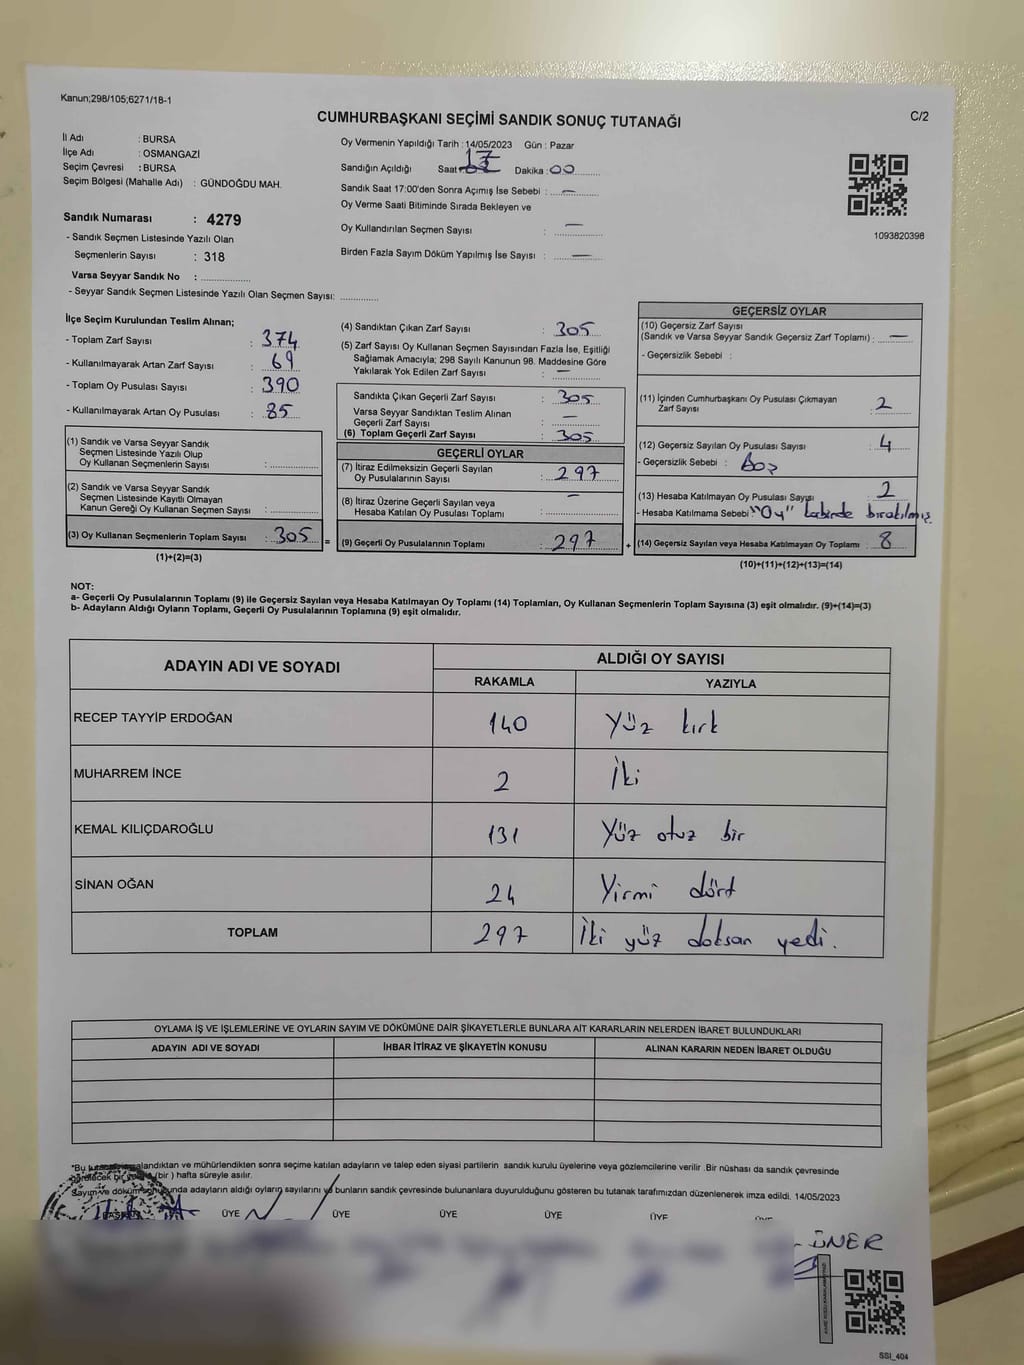 Kanun;298/105;6271/18-1
C/2
CUMHURBAŞKANI SEÇİMİ SANDIK SONUÇ TUTANAĞI
İl Adı : BURSA
İlçe Adı : OSMANGAZİ
Seçim Çevresi : BURSA
Seçim Bölgesi (Mahalle Adı) : GÜNDOĞDU MAH.
Oy Vermenin Yapıldığı Tarih : 14/05/2023 Gün : Pazar
Sandığın Açıldığı Saat : 17 Dakika : 00
Sandık Saat 17:00'den Sonra Açımış İse Sebebi : —
Oy Verme Saati Bitiminde Sırada Bekleyen ve
Oy Kullandırılan Seçmen Sayısı : —
Birden Fazla Sayım Döküm Yapılmış İse Sayısı : —
1093820398
Sandık Numarası : 4279
- Sandık Seçmen Listesinde Yazılı Olan
Seçmenlerin Sayısı : 318
Varsa Seyyar Sandık No :
- Seyyar Sandık Seçmen Listesinde Yazılı Olan Seçmen Sayısı:
İlçe Seçim Kurulundan Teslim Alınan;
- Toplam Zarf Sayısı : 374
- Kullanılmayarak Artan Zarf Sayısı : 69
- Toplam Oy Pusulası Sayısı : 390
- Kullanılmayarak Artan Oy Pusulası : 85
(1) Sandık ve Varsa Seyyar Sandık
Seçmen Listesinde Yazılı Olup
Oy Kullanan Seçmenlerin Sayısı :
(2) Sandık ve Varsa Seyyar Sandık
Seçmen Listesinde Kayıtlı Olmayan
Kanun Gereği Oy Kullanan Seçmen Sayısı :
(3) Oy Kullanan Seçmenlerin Toplam Sayısı : 305
(1)+(2)=(3)
(4) Sandıktan Çıkan Zarf Sayısı : 305
(5) Zarf Sayısı Oy Kullanan Seçmen Sayısından Fazla İse, Eşitliği
Sağlamak Amacıyla; 298 Sayılı Kanunun 98. Maddesine Göre
Yakılarak Yok Edilen Zarf Sayısı : —
Sandıkta Çıkan Geçerli Zarf Sayısı : 305
Varsa Seyyar Sandıktan Teslim Alınan
Geçerli Zarf Sayısı : —
(6) Toplam Geçerli Zarf Sayısı : 305
GEÇERLİ OYLAR
(7) İtiraz Edilmeksizin Geçerli Sayılan
Oy Pusulalarının Sayısı : 297
(8) İtiraz Üzerine Geçerli Sayılan veya
Hesaba Katılan Oy Pusulası Toplamı : —
= (9) Geçerli Oy Pusulalarının Toplamı : 297 +
GEÇERSİZ OYLAR
(10) Geçersiz Zarf Sayısı
(Sandık ve Varsa Seyyar Sandık Geçersiz Zarf Toplamı) : —
- Geçersizlik Sebebi :
(11) İçinden Cumhurbaşkanı Oy Pusulası Çıkmayan
Zarf Sayısı : 2
(12) Geçersiz Sayılan Oy Pusulası Sayısı : 4
- Geçersizlik Sebebi : Boş
(13) Hesaba Katılmayan Oy Pusulası Sayısı : 2
- Hesaba Katılmama Sebebi : "Oy" kabinde bırakılmış
(14) Geçersiz Sayılan veya Hesaba Katılmayan Oy Toplamı : 8
(10)+(11)+(12)+(13)=(14)
NOT:
a- Geçerli Oy Pusulalarının Toplamı (9) ile Geçersiz Sayılan veya Hesaba Katılmayan Oy Toplamı (14) Toplamları, Oy Kullanan Seçmenlerin Toplam Sayısına (3) eşit olmalıdır. (9)+(14)=(3)
b- Adayların Aldığı Oyların Toplamı, Geçerli Oy Pusulalarının Toplamına (9) eşit olmalıdır.
ADAYIN ADI VE SOYADI ALDIĞI OY SAYISI
RAKAMLA YAZIYLA
RECEP TAYYİP ERDOĞAN 140 Yüz kırk
MUHARREM İNCE 2 İki
KEMAL KILIÇDAROĞLU 131 Yüz otuz bir
SİNAN OĞAN 24 Yirmi dört
TOPLAM 297 İki yüz doksan yedi.
OYLAMA İŞ VE İŞLEMLERİNE VE OYLARIN SAYIM VE DÖKÜMÜNE DAİR ŞİKAYETLERLE BUNLARA AİT KARARLARIN NELERDEN İBARET BULUNDUKLARI
ADAYIN ADI VE SOYADI İHBAR İTİRAZ VE ŞİKAYETİN KONUSU ALINAN KARARIN NEDEN İBARET OLDUĞU
*Bu mühürlendikten sonra seçime katılan adayların ve talep eden siyasi partilerin sandık kurulu üyelerine veya gözlemcilerine verilir .Bir nüshası da sandık çevresinde
(bir ) hafta süreyle asılır.
Sayım ve döküm adayların aldığı oyların sayılarını ve bunların sandık çevresinde bulunanlara duyurulduğunu gösteren bu tutanak tarafımızdan düzenlenerek imza edildi. 14/05/2023
BAŞKAN ÜYE ÜYE ÜYE ÜYE ÜYE
ÜNER
SSI_404